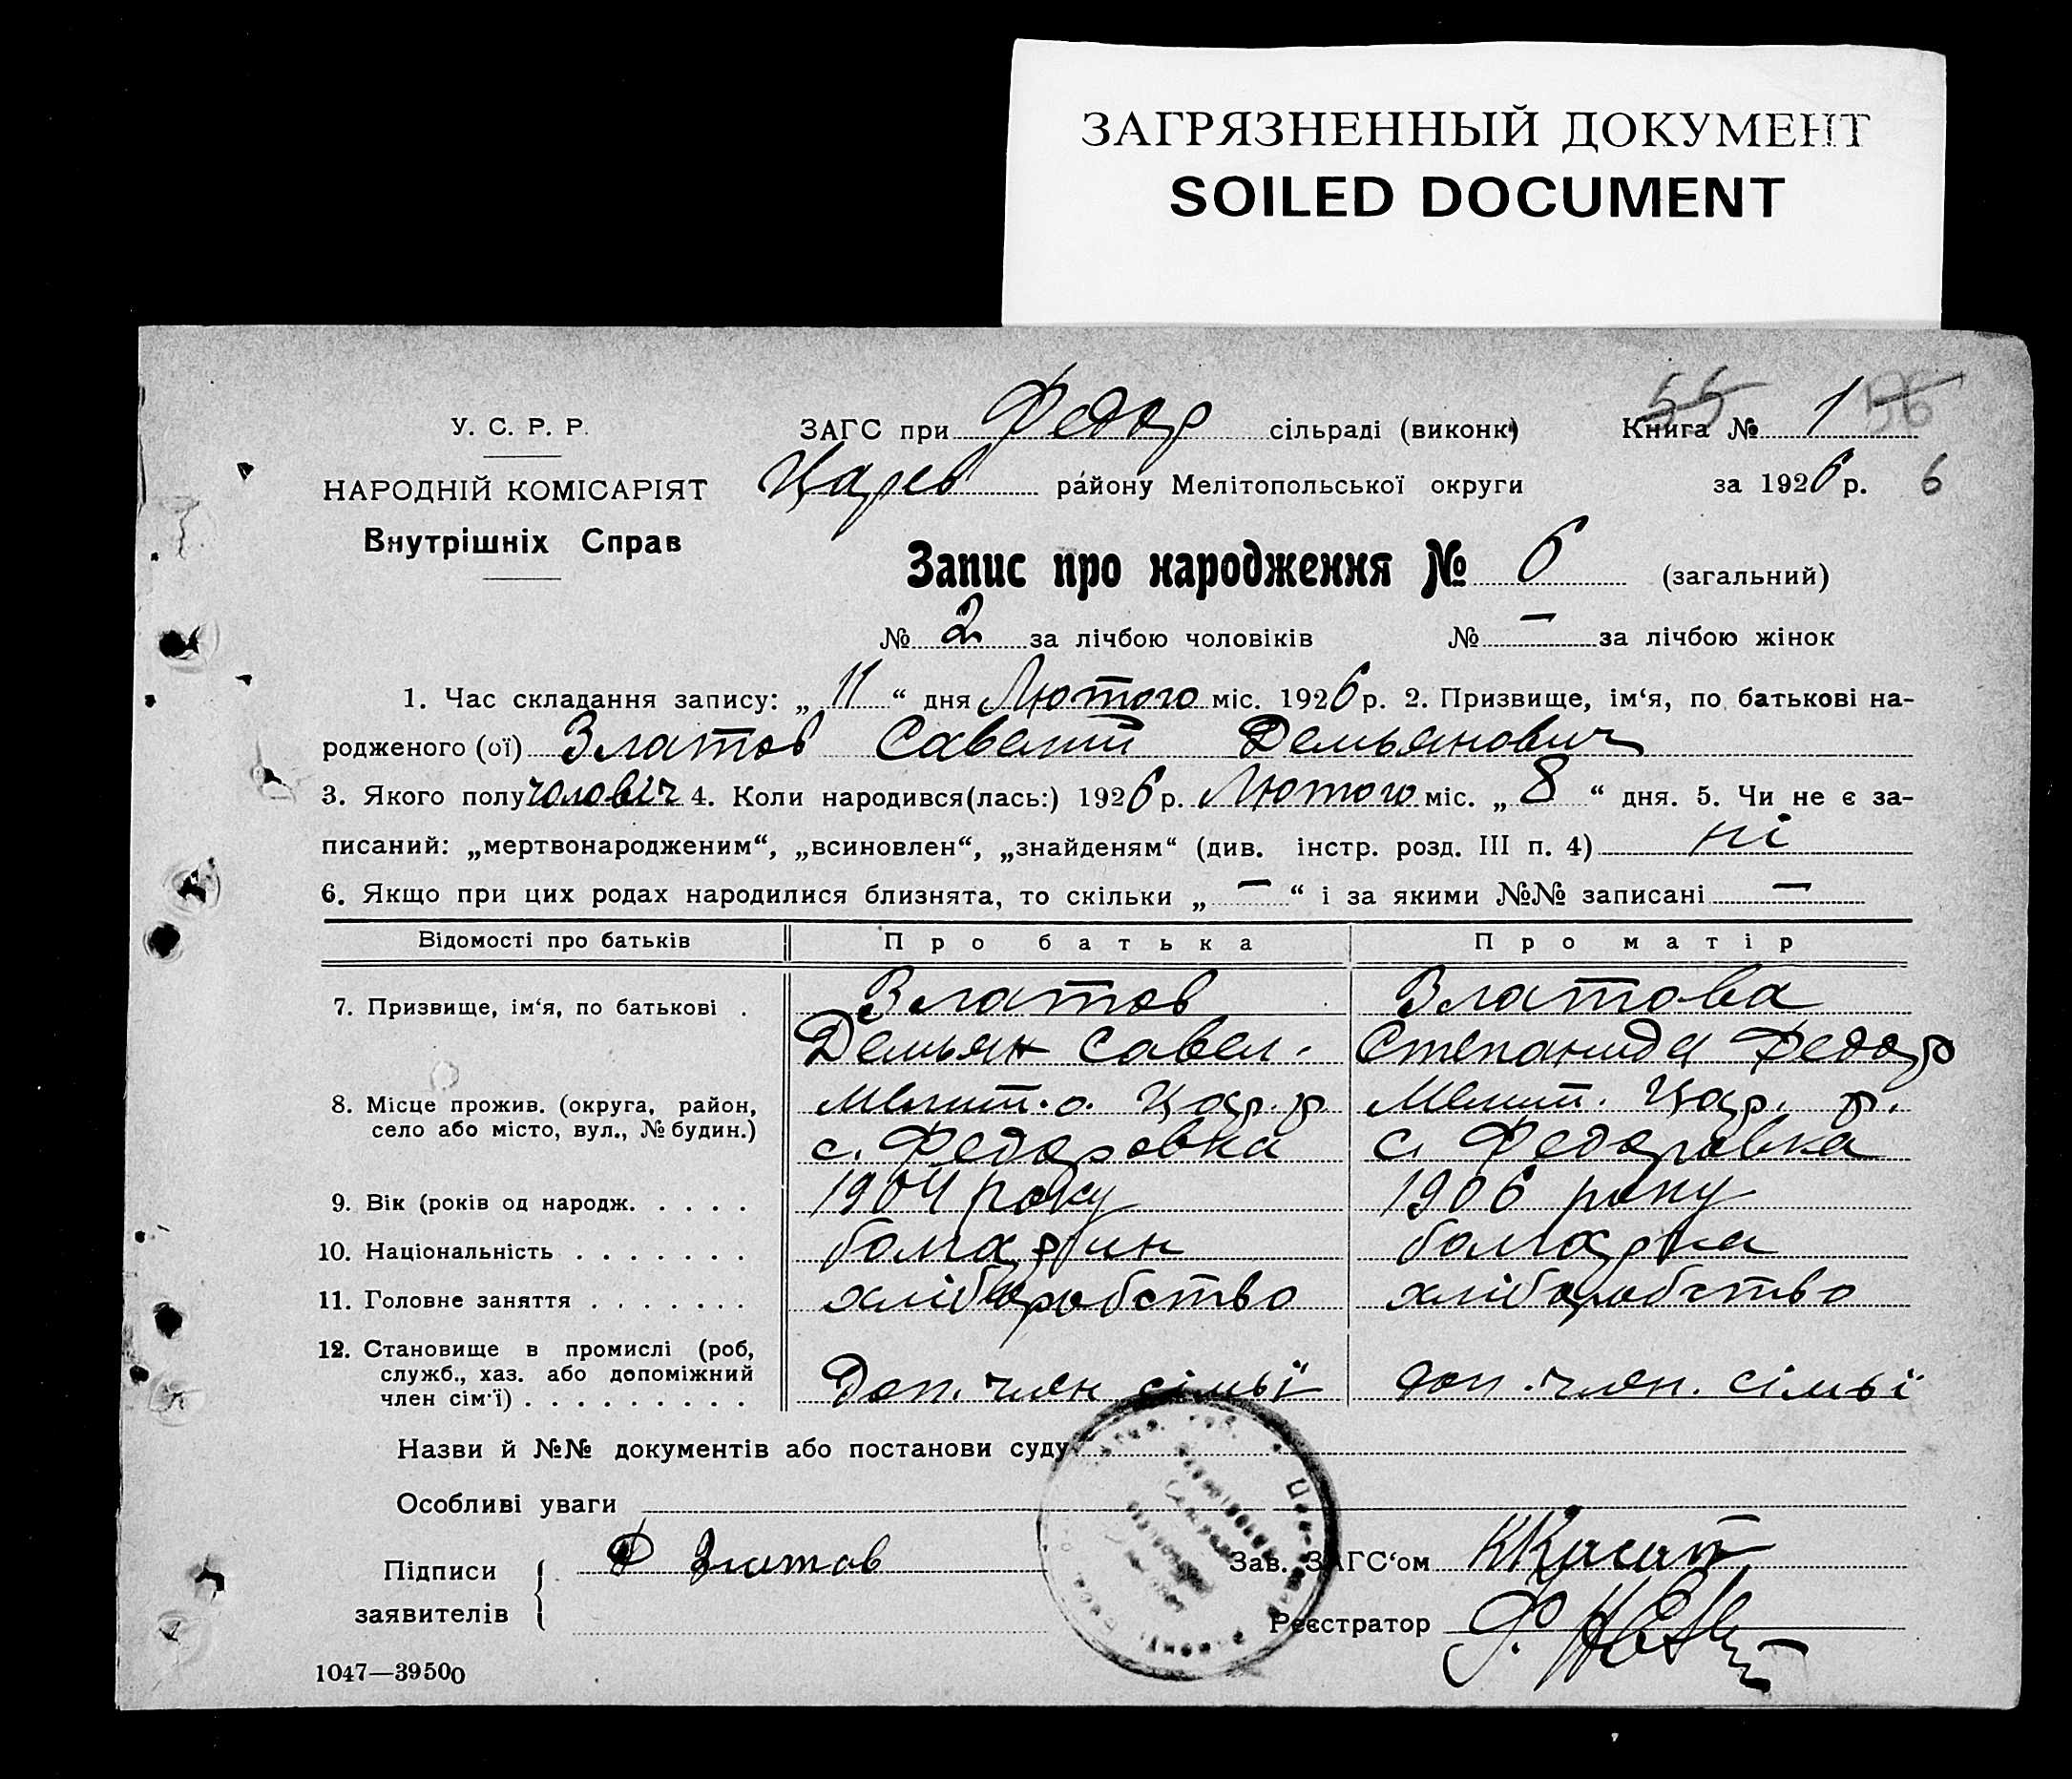 ЗАГРЯЗНЕННЫЙ ДОКУМЕНТ
SOILED DOCUMENT
У. С. Р. Р.
НАРОДНІЙ КОМІСАРІЯТ
Внутрішніх Справ
ЗАГС при Федор сільраді (виконк)
Царев району Мелітопольської округи
55 56
Книга № 1
за 1926 р. 6
Запис про народження № 6 (загальний)
№ 2 за лічбою чоловіків № — за лічбою жінок
1. Час складання запису: „ 11 “ дня Лютого міс. 1926 р. 2. Призвище, ім‘я, по батькові на-
родженого (ої) Златов Савелий Демьянович
3. Якого полу чоловіч 4. Коли народився(лась:) 1926 р. Лютого міс. „ 8 “ дня. 5. Чи не є за-
писаний: „мертвонародженим“, „всиновлен“, „знайденям“ (див. інстр. розд. III п. 4) ні
6. Якщо при цих родах народилися близнята, то скільки „ — “ і за якими №№ записані —
Відомості про батьків Про батька Про матір
7. Призвище, ім‘я, по батькові . Златов Златова
Демьян Савел. Степанида Федор
8. Місце прожив. (округа, район, село або місто, вул., № будин.) Мелит. о. Цар. р Мелит. Цар. р.
с. Федоровка с. Федоровка
9. Вік (років од народж. . . . . 1904 року 1906 року
10. Національність . . . . . . . болгарин болгарка
11. Головне заняття . . . . . . . хліборобство хліборобство
12. Становище в промислі (роб, служб., хаз. або допоміжний член сім‘ї) . . . . . . . . . Доп. член сімьї доп. член. сімьї
Назви й №№ документів або постанови суду
Особливі уваги
Підписи заявителів Д Златов
Зав. ЗАГС‘ом
Реєстратор
1047—39500